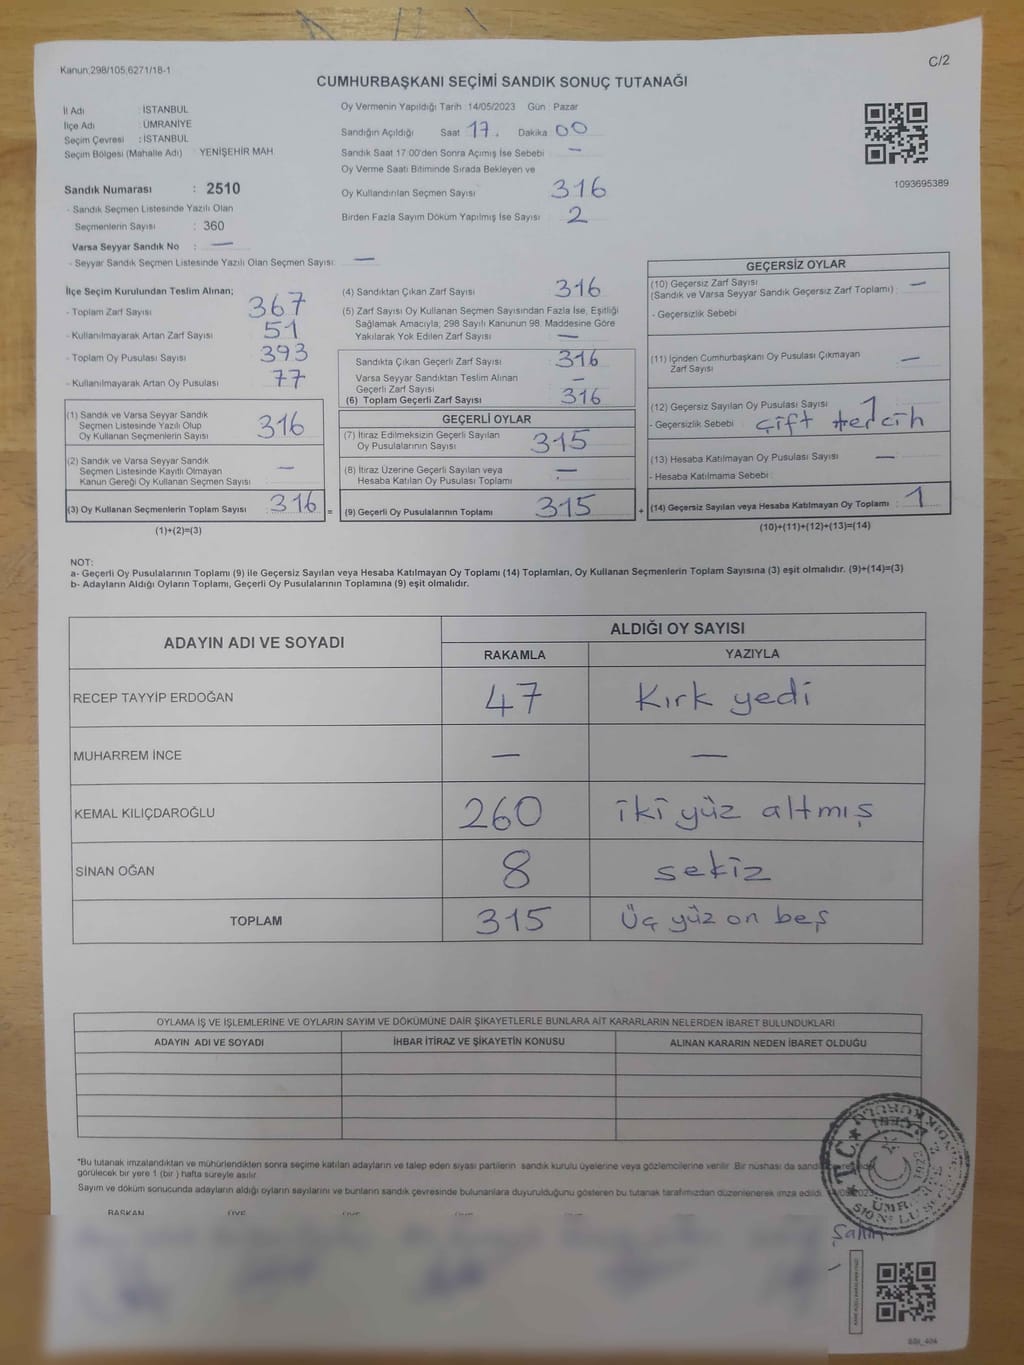 Kanun;298/105,6271/18-1
C/2
CUMHURBAŞKANI SEÇİMİ SANDIK SONUÇ TUTANAĞI
İl Adı : İSTANBUL
İlçe Adı : ÜMRANİYE
Seçim Çevresi : İSTANBUL
Seçim Bölgesi (Mahalle Adı) YENİŞEHİR MAH.
Sandık Numarası : 2510
- Sandık Seçmen Listesinde Yazılı Olan
Seçmenlerin Sayısı : 360
Varsa Seyyar Sandık No : —
- Seyyar Sandık Seçmen Listesinde Yazılı Olan Seçmen Sayısı: —
Oy Vermenin Yapıldığı Tarih :14/05/2023 Gün : Pazar
Sandığın Açıldığı Saat 17. Dakika 00
Sandık Saat 17:00'den Sonra Açılmış İse Sebebi : —
Oy Verme Saati Bitiminde Sırada Bekleyen ve
Oy Kullandırılan Seçmen Sayısı 316
Birden Fazla Sayım Döküm Yapılmış İse Sayısı : 2
1093695389
İlçe Seçim Kurulundan Teslim Alınan;
- Toplam Zarf Sayısı 367
- Kullanılmayarak Artan Zarf Sayısı 51
- Toplam Oy Pusulası Sayısı 393
- Kullanılmayarak Artan Oy Pusulası 77
(1) Sandık ve Varsa Seyyar Sandık
Seçmen Listesinde Yazılı Olup
Oy Kullanan Seçmenlerin Sayısı 316
(2) Sandık ve Varsa Seyyar Sandık
Seçmen Listesinde Kayıtlı Olmayan
Kanun Gereği Oy Kullanan Seçmen Sayısı : —
(3) Oy Kullanan Seçmenlerin Toplam Sayısı : 316 =
(1)+(2)=(3)
(4) Sandıktan Çıkan Zarf Sayısı 316
(5) Zarf Sayısı Oy Kullanan Seçmen Sayısından Fazla İse, Eşitliği
Sağlamak Amacıyla, 298 Sayılı Kanunun 98. Maddesine Göre
Yakılarak Yok Edilen Zarf Sayısı —
Sandıkta Çıkan Geçerli Zarf Sayısı 316
Varsa Seyyar Sandıktan Teslim Alınan
Geçerli Zarf Sayısı —
(6) Toplam Geçerli Zarf Sayısı 316
GEÇERLİ OYLAR
(7) İtiraz Edilmeksizin Geçerli Sayılan
Oy Pusulalarının Sayısı 315
(8) İtiraz Üzerine Geçerli Sayılan veya
Hesaba Katılan Oy Pusulası Toplamı —
(9) Geçerli Oy Pusulalarının Toplamı 315 +
GEÇERSİZ OYLAR
(10) Geçersiz Zarf Sayısı
(Sandık ve Varsa Seyyar Sandık Geçersiz Zarf Toplamı) : —
- Geçersizlik Sebebi
(11) İçinden Cumhurbaşkanı Oy Pusulası Çıkmayan
Zarf Sayısı —
(12) Geçersiz Sayılan Oy Pusulası Sayısı 1
- Geçersizlik Sebebi : Çift tercih
(13) Hesaba Katılmayan Oy Pusulası Sayısı —
- Hesaba Katılmama Sebebi :
(14) Geçersiz Sayılan veya Hesaba Katılmayan Oy Toplamı : 1
(10)+(11)+(12)+(13)=(14)
NOT:
a- Geçerli Oy Pusulalarının Toplamı (9) ile Geçersiz Sayılan veya Hesaba Katılmayan Oy Toplamı (14) Toplamları, Oy Kullanan Seçmenlerin Toplam Sayısına (3) eşit olmalıdır. (9)+(14)=(3)
b- Adayların Aldığı Oyların Toplamı, Geçerli Oy Pusulalarının Toplamına (9) eşit olmalıdır.
ADAYIN ADI VE SOYADI ALDIĞI OY SAYISI
RAKAMLA YAZIYLA
RECEP TAYYİP ERDOĞAN 47 Kırk yedi
MUHARREM İNCE — —
KEMAL KILIÇDAROĞLU 260 iki yüz altmış
SİNAN OĞAN 8 sekiz
TOPLAM 315 Üç yüz on beş
OYLAMA İŞ VE İŞLEMLERİNE VE OYLARIN SAYIM VE DÖKÜMÜNE DAİR ŞİKAYETLERLE BUNLARA AİT KARARLARIN NELERDEN İBARET BULUNDUKLARI
ADAYIN ADI VE SOYADI İHBAR İTİRAZ VE ŞİKAYETİN KONUSU ALINAN KARARIN NEDEN İBARET OLDUĞU
*Bu tutanak imzalandıktan ve mühürlendikten sonra seçime katılan adayların ve talep eden siyasi partilerin sandık kurulu üyelerine veya gözlemcilerine verilir. Bir nüshası da
görülecek bir yere 1 (bir) hafta süreyle asılır.
Sayım ve döküm sonucunda adayların aldığı oyların sayılarını ve bunların sandık çevresinde bulunanlara duyurulduğunu gösteren bu tutanak tarafımızdan düzenlenerek imza edildi.
BAŞKAN ÜYE ÜYE ÜYE ÜYE
T.C.